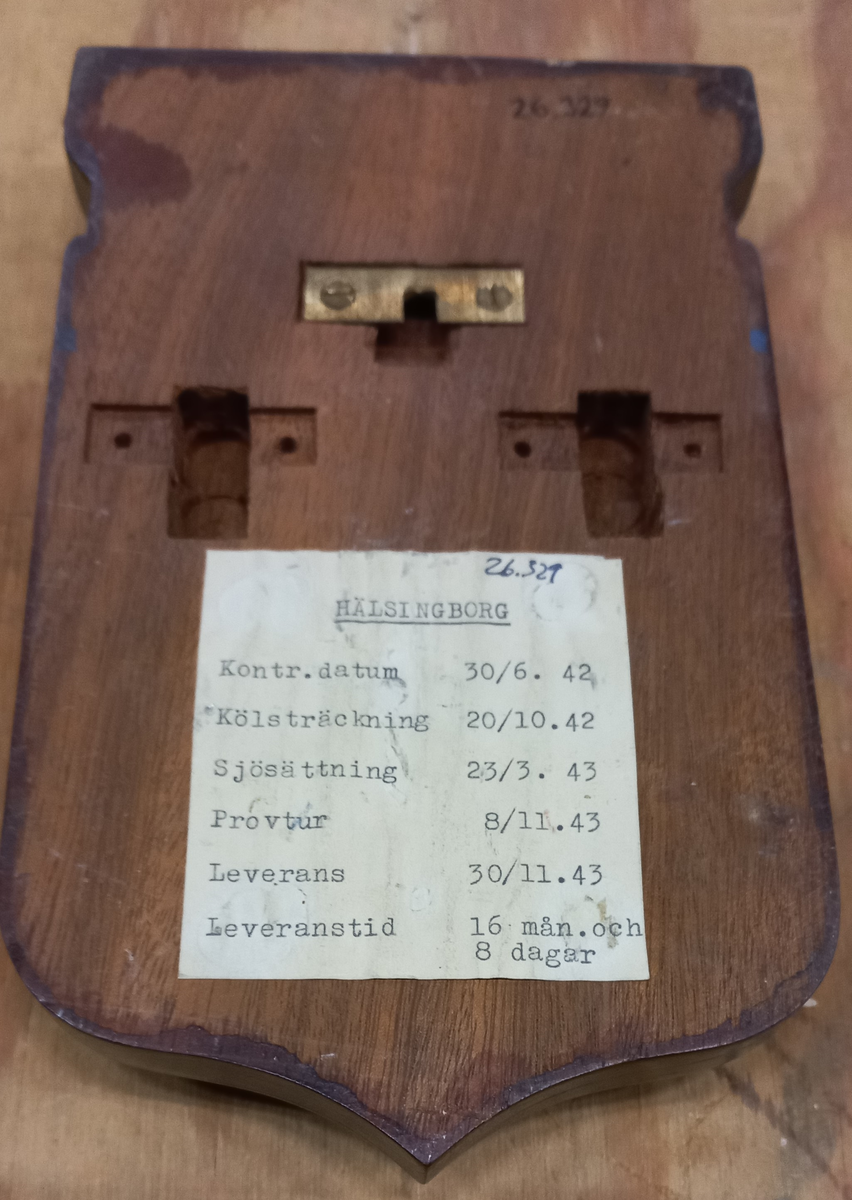 26.329
26.329
HÄLSINGBORG
Kontr.datum 30/6. 42
Kölsträckning 20/10.42
Sjösättning 23/3. 43
Provtur 8/11.43
Leverans 30/11.43
Leveranstid 16 mån.och
8 dagar